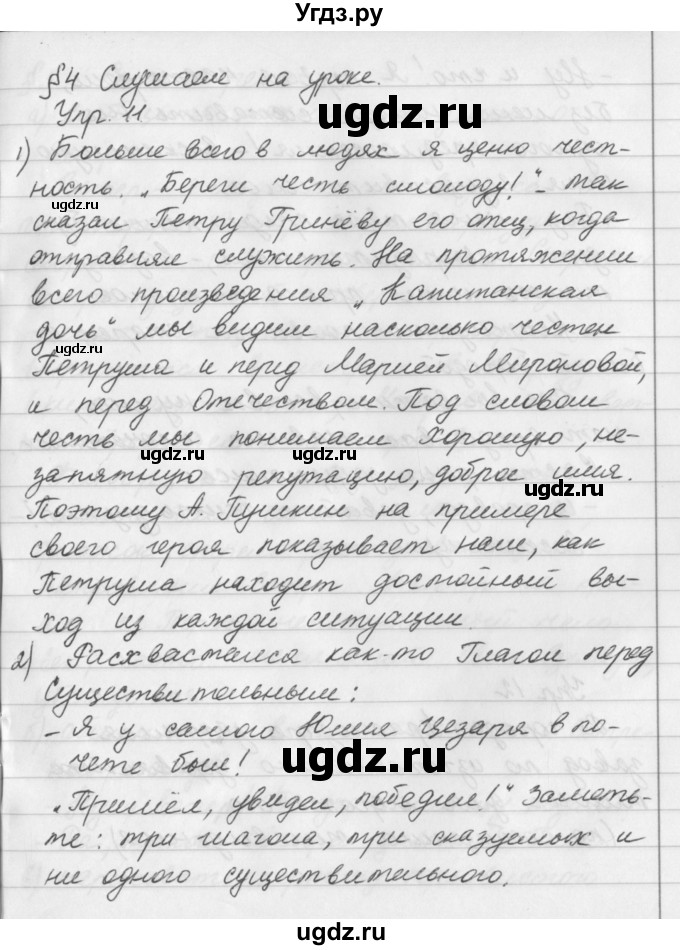 Угдз.ру
§4 Слушаем на уроке.
Упр. 11
1) Больше всего в людях я ценю чест-
ность. „Береги честь смолоду!“ - так
сказал Петру Гринёву его отец, когда
отправлял служить. На протяжении
всего произведения „Капитанская
дочь“ мы видим насколько честен
Петруша и перед Марией Мироновой,
и перед Отечеством. Под словом
честь мы понимаем хорошую, не-
запятную репутацию, доброе имя.
Поэтому А. Пушкин на примере
своего героя показывает нам, как
Петруша находит достойный вы-
ход из каждой ситуации.
2) Расхвастался как-то Глагол перед
Существительным:
- Я у самого Юлия Цезаря в по-
чете был!
„Пришёл, увидел, победил!“ Заметь-
те: три глагола, три сказуемых и
ни одного существительного.
ugdz.ru
ugdz.ru
ugdz.ru
ugdz.ru
ugdz.ru
ugdz.ru
ugdz.ru
ugdz.ru
ugdz.ru
ugdz.ru
ugdz.ru
ugdz.ru
ugdz.ru
Угдз.ру